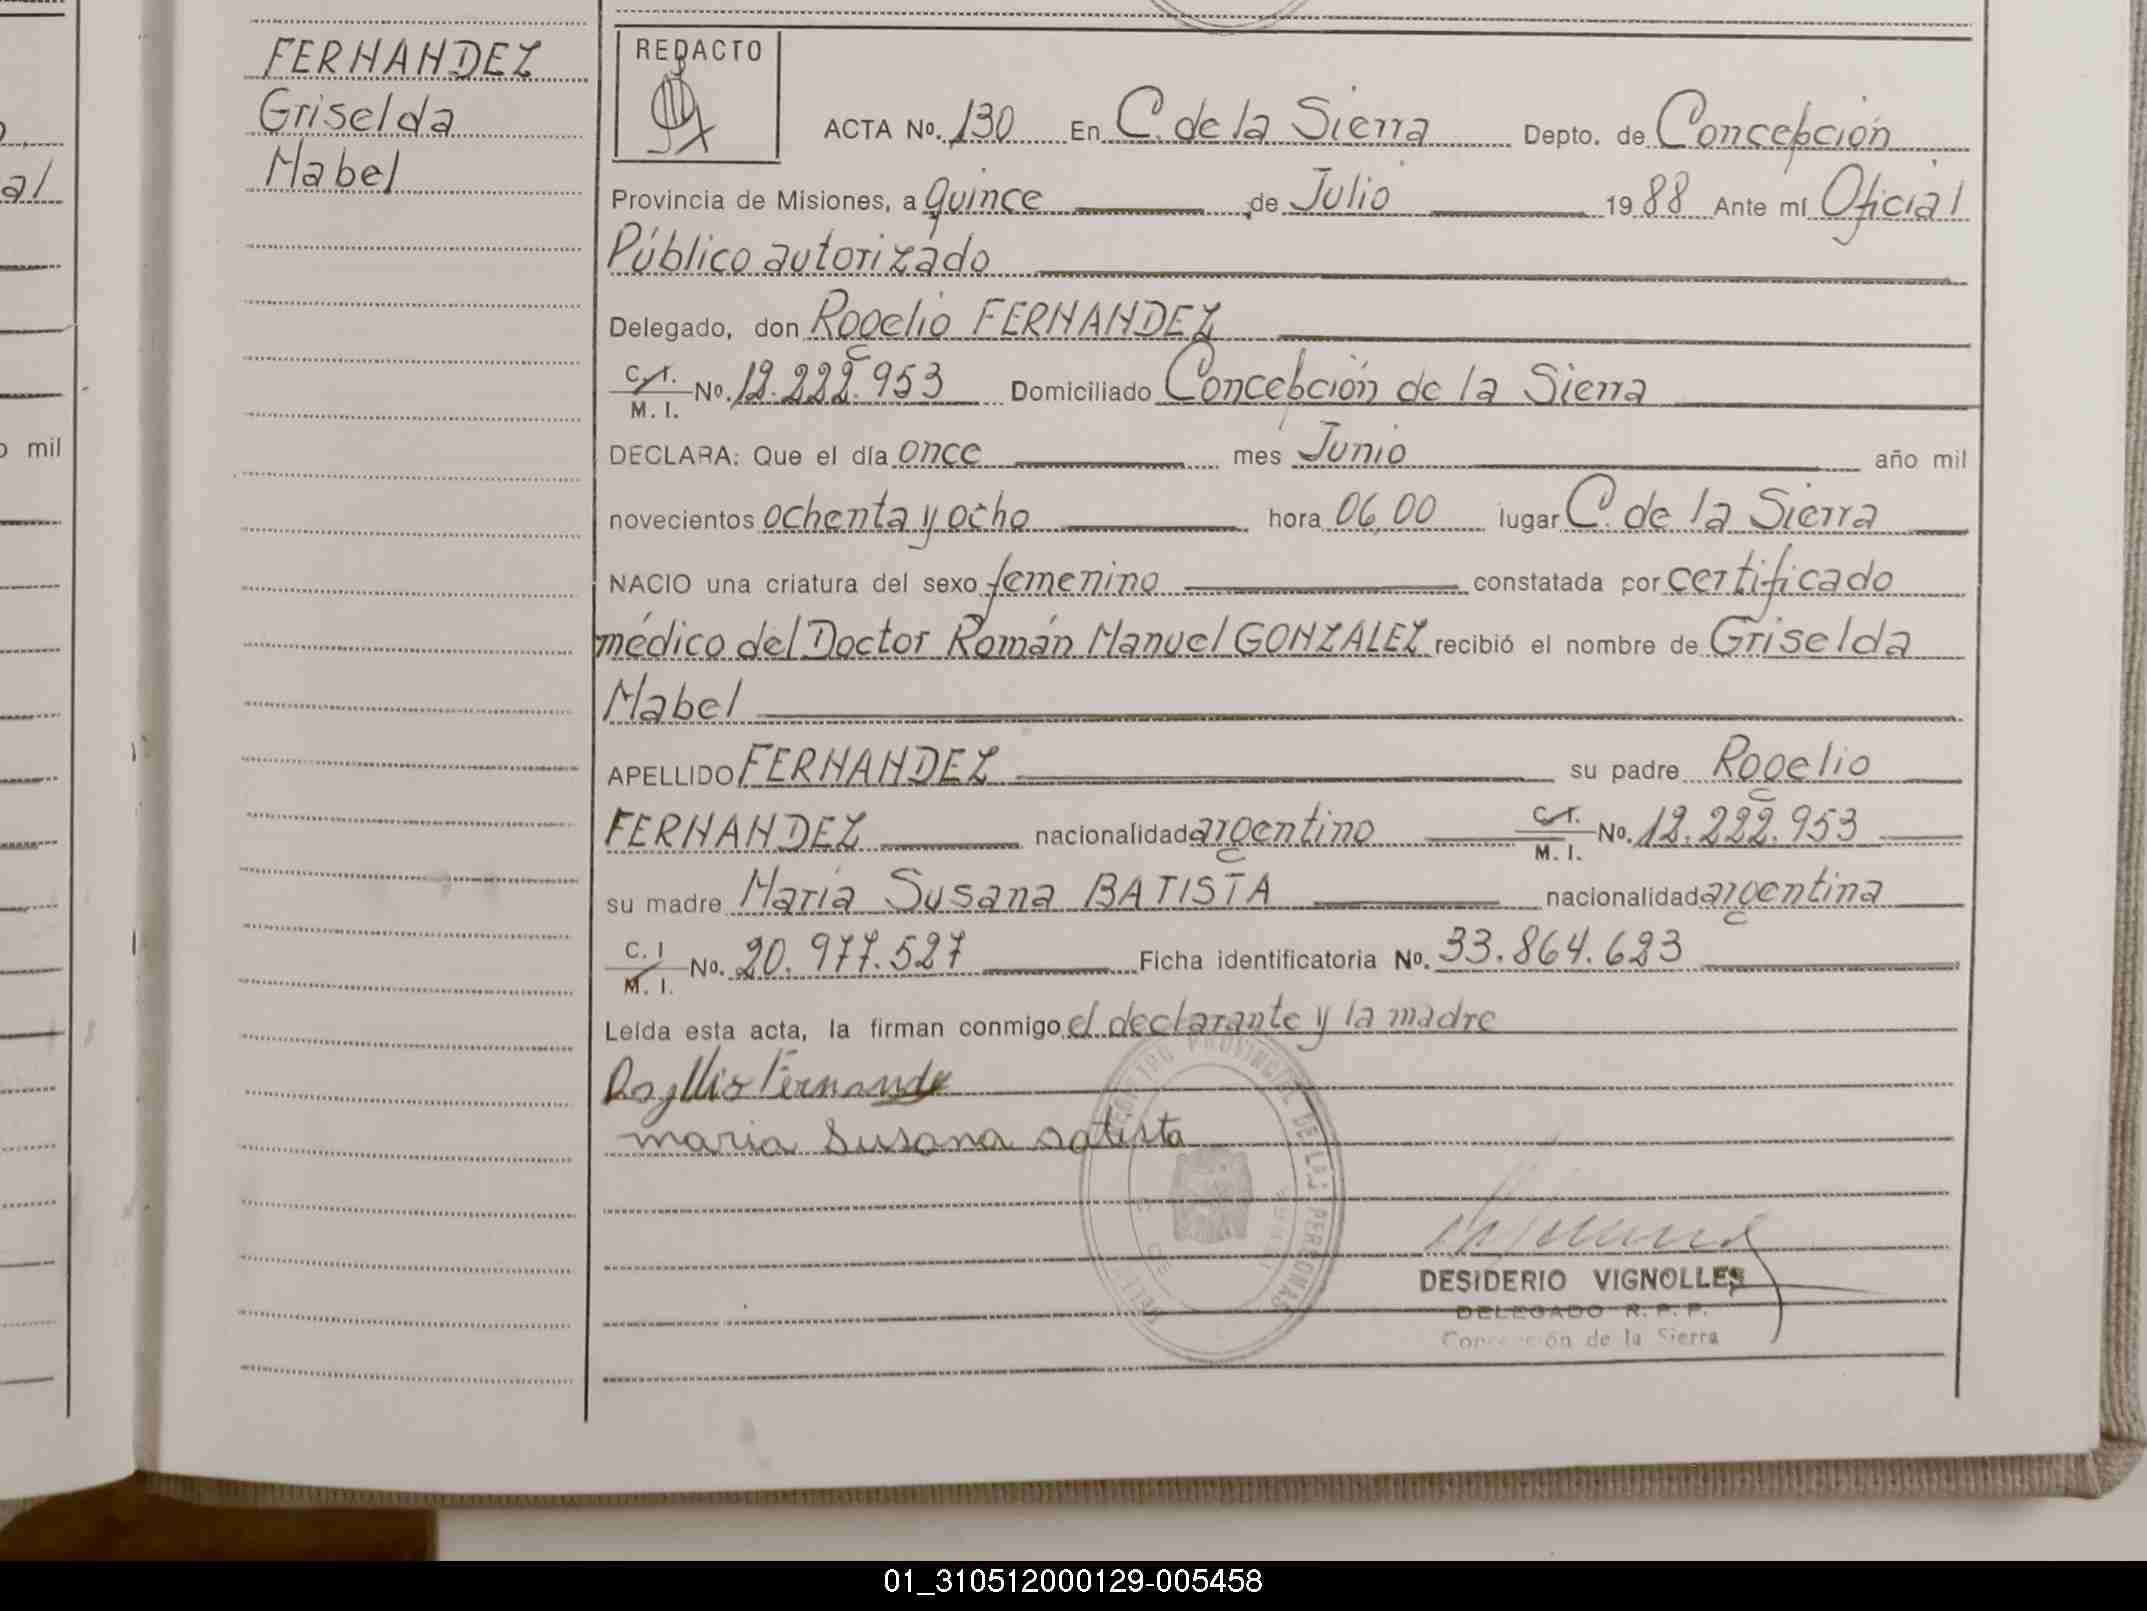 FERNANDEZ
Griselda
Mabel
al
o mil
REDACTO
ACTA No. 130 En C. de la Sierra Depto. de Concepción
Provincia de Misiones, a quince de Julio 1988 Ante mí Oficial
Público autorizado
Delegado, don Rogelio FERNANDEZ
C. I. M. I. No. 12.222.953 Domiciliado Concepción de la Sierra
DECLARA: Que el día once mes Junio año mil
novecientos ochenta y ocho hora 06,00 lugar C. de la Sierra
NACIO una criatura del sexo femenino constatada por certificado
médico del Doctor Román Manuel GONZALEZ recibió el nombre de Griselda
Mabel
APELLIDO FERNANDEZ su padre Rogelio
FERNANDEZ nacionalidad argentino C. I. M. I. No. 12.222.953
su madre María Susana BATISTA nacionalidad argentina
C. I M. I. No. 20.977.527 Ficha identificatoria No. 33.864.623
Leída esta acta, la firman conmigo el declarante y la madre
maria Susana Batista
PROVINCIAL DE LAS PERSONAS
DESIDERIO VIGNOLLES
DELEGADO R. P. P.
Concepción de la Sierra
01_310512000129-005458